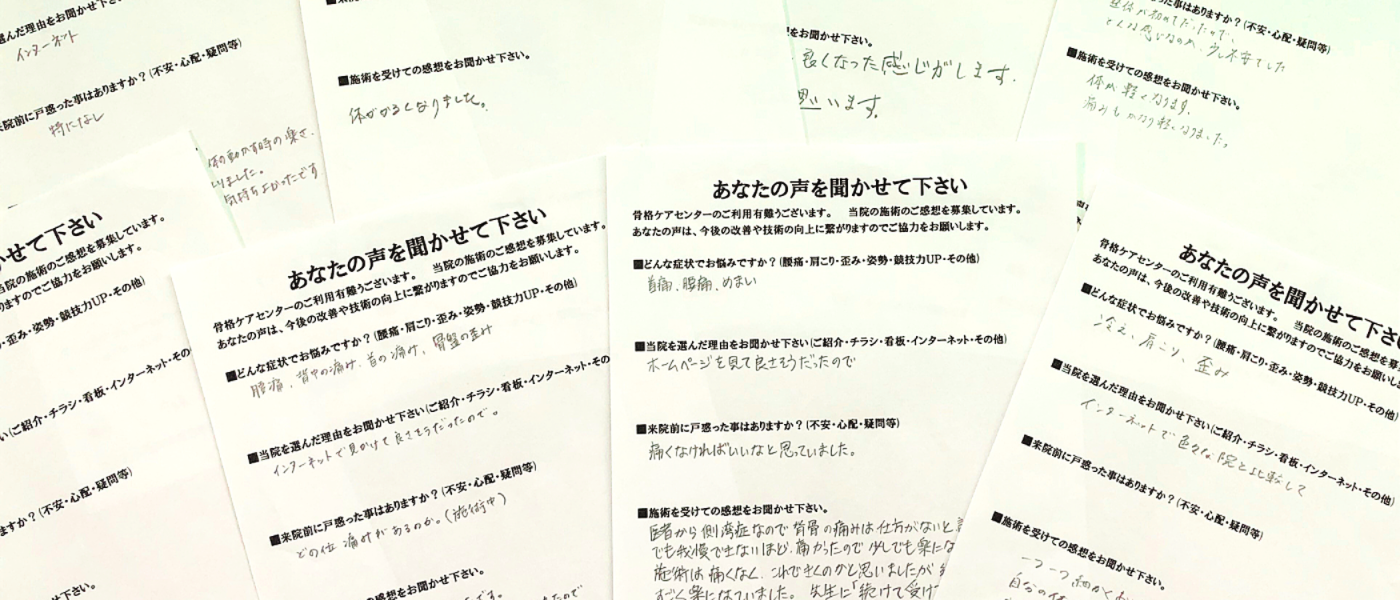 選んだ理由をお聞かせ下
インターネット
来院前に戸惑った事はありますか?(不安・心配・疑問等)
特になし
体の動かす時の楽さ、
いました。
気持ちよかったです
■施術を受けての感想をお聞かせ下さい。
体がかるくなりました。
をお聞かせ下さい。
良くなった感じがします.
思います。
事はありますか?(不安・心配・疑問等)
■施術を受けての感想をお聞かせ下さい。
体が軽くなります。
かせて下さい
当院の施術のご感想を募集しています。
すのでご協力をお願いします。
・歪み・姿勢・競技力UP・その他)
い(ご紹介・チラシ・看板・インターネット・その
ますか?(不安・心配・疑問等)
い。
あなたの声を聞かせて下さい
骨格ケアセンターのご利用有難うございます。 当院の施術のご感想を募集しています。
あなたの声は、今後の改善や技術の向上に繋がりますのでご協力をお願いします。
■どんな症状でお悩みですか?(腰痛・肩こり・歪み・姿勢・競技力UP・その他)
腰痛、背中の痛み、首の痛み、骨盤の歪み
■当院を選んだ理由をお聞かせ下さい(ご紹介・チラシ・看板・インターネット・その
インターネットで見かけて良さそうだったので。
■来院前に戸惑った事はありますか?(不安・心配・疑問等)
どの位 痛みがあるのか。(施術中)
お聞かせ下さい。
あなたの声を聞かせて下さい
骨格ケアセンターのご利用有難うございます。 当院の施術のご感想を募集しています。
あなたの声は、今後の改善や技術の向上に繋がりますのでご協力をお願いします。
■どんな症状でお悩みですか?(腰痛・肩こり・歪み・姿勢・競技力UP・その他)
首痛、腰痛、めまい
■当院を選んだ理由をお聞かせ下さい(ご紹介・チラシ・看板・インターネット・その他)
ホームページを見て良さそうだったので
■来院前に戸惑った事はありますか?(不安・心配・疑問等)
痛くなければいいなと思っていました。
■施術を受けての感想をお聞かせ下さい。
医者から側湾症なので背骨の痛みは仕方がないと
でも我慢できないほど、痛かったので少しでも楽にな
施術は痛くなく、これできくのかと思いましたが
すごく楽になっていました。 先生に「続けて受け
あなたの声を聞かせて下さ
骨格ケアセンターのご利用有難うございます。 当院の施術のご感想を募
あなたの声は、今後の改善や技術の向上に繋がりますのでご協力をお願いし
■どんな症状でお悩みですか?(腰痛・肩こり・歪み・姿勢・競技力UP・その他)
冷え、肩こり、歪み
■当院を選んだ理由をお聞かせ下さい(ご紹介・チラシ・看板・インターネット・その他)
インターネットで色々な院と比較して
■来院前に戸惑った事はありますか?(不安・心配・疑問等)
■施術を受けての感想をお聞かせ下さい。
一つ一つ細かく